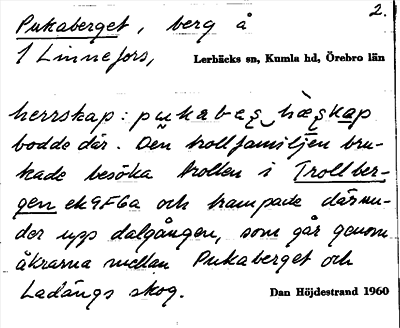 Pukaberget, berg å 2.
1 Linnefors, Lerbäcks sn, Kumla hd, Örebro län
herrskap:
bodde där. Den trollfamiljen bru-
kade besöka trollen i Trollber-
gen ek 9F6a och trampade därnu-
der upp dalgången, som går genom
åkrarna mellan Pukaberget och
Ladängs skog. Dan Höjdestrand 1960